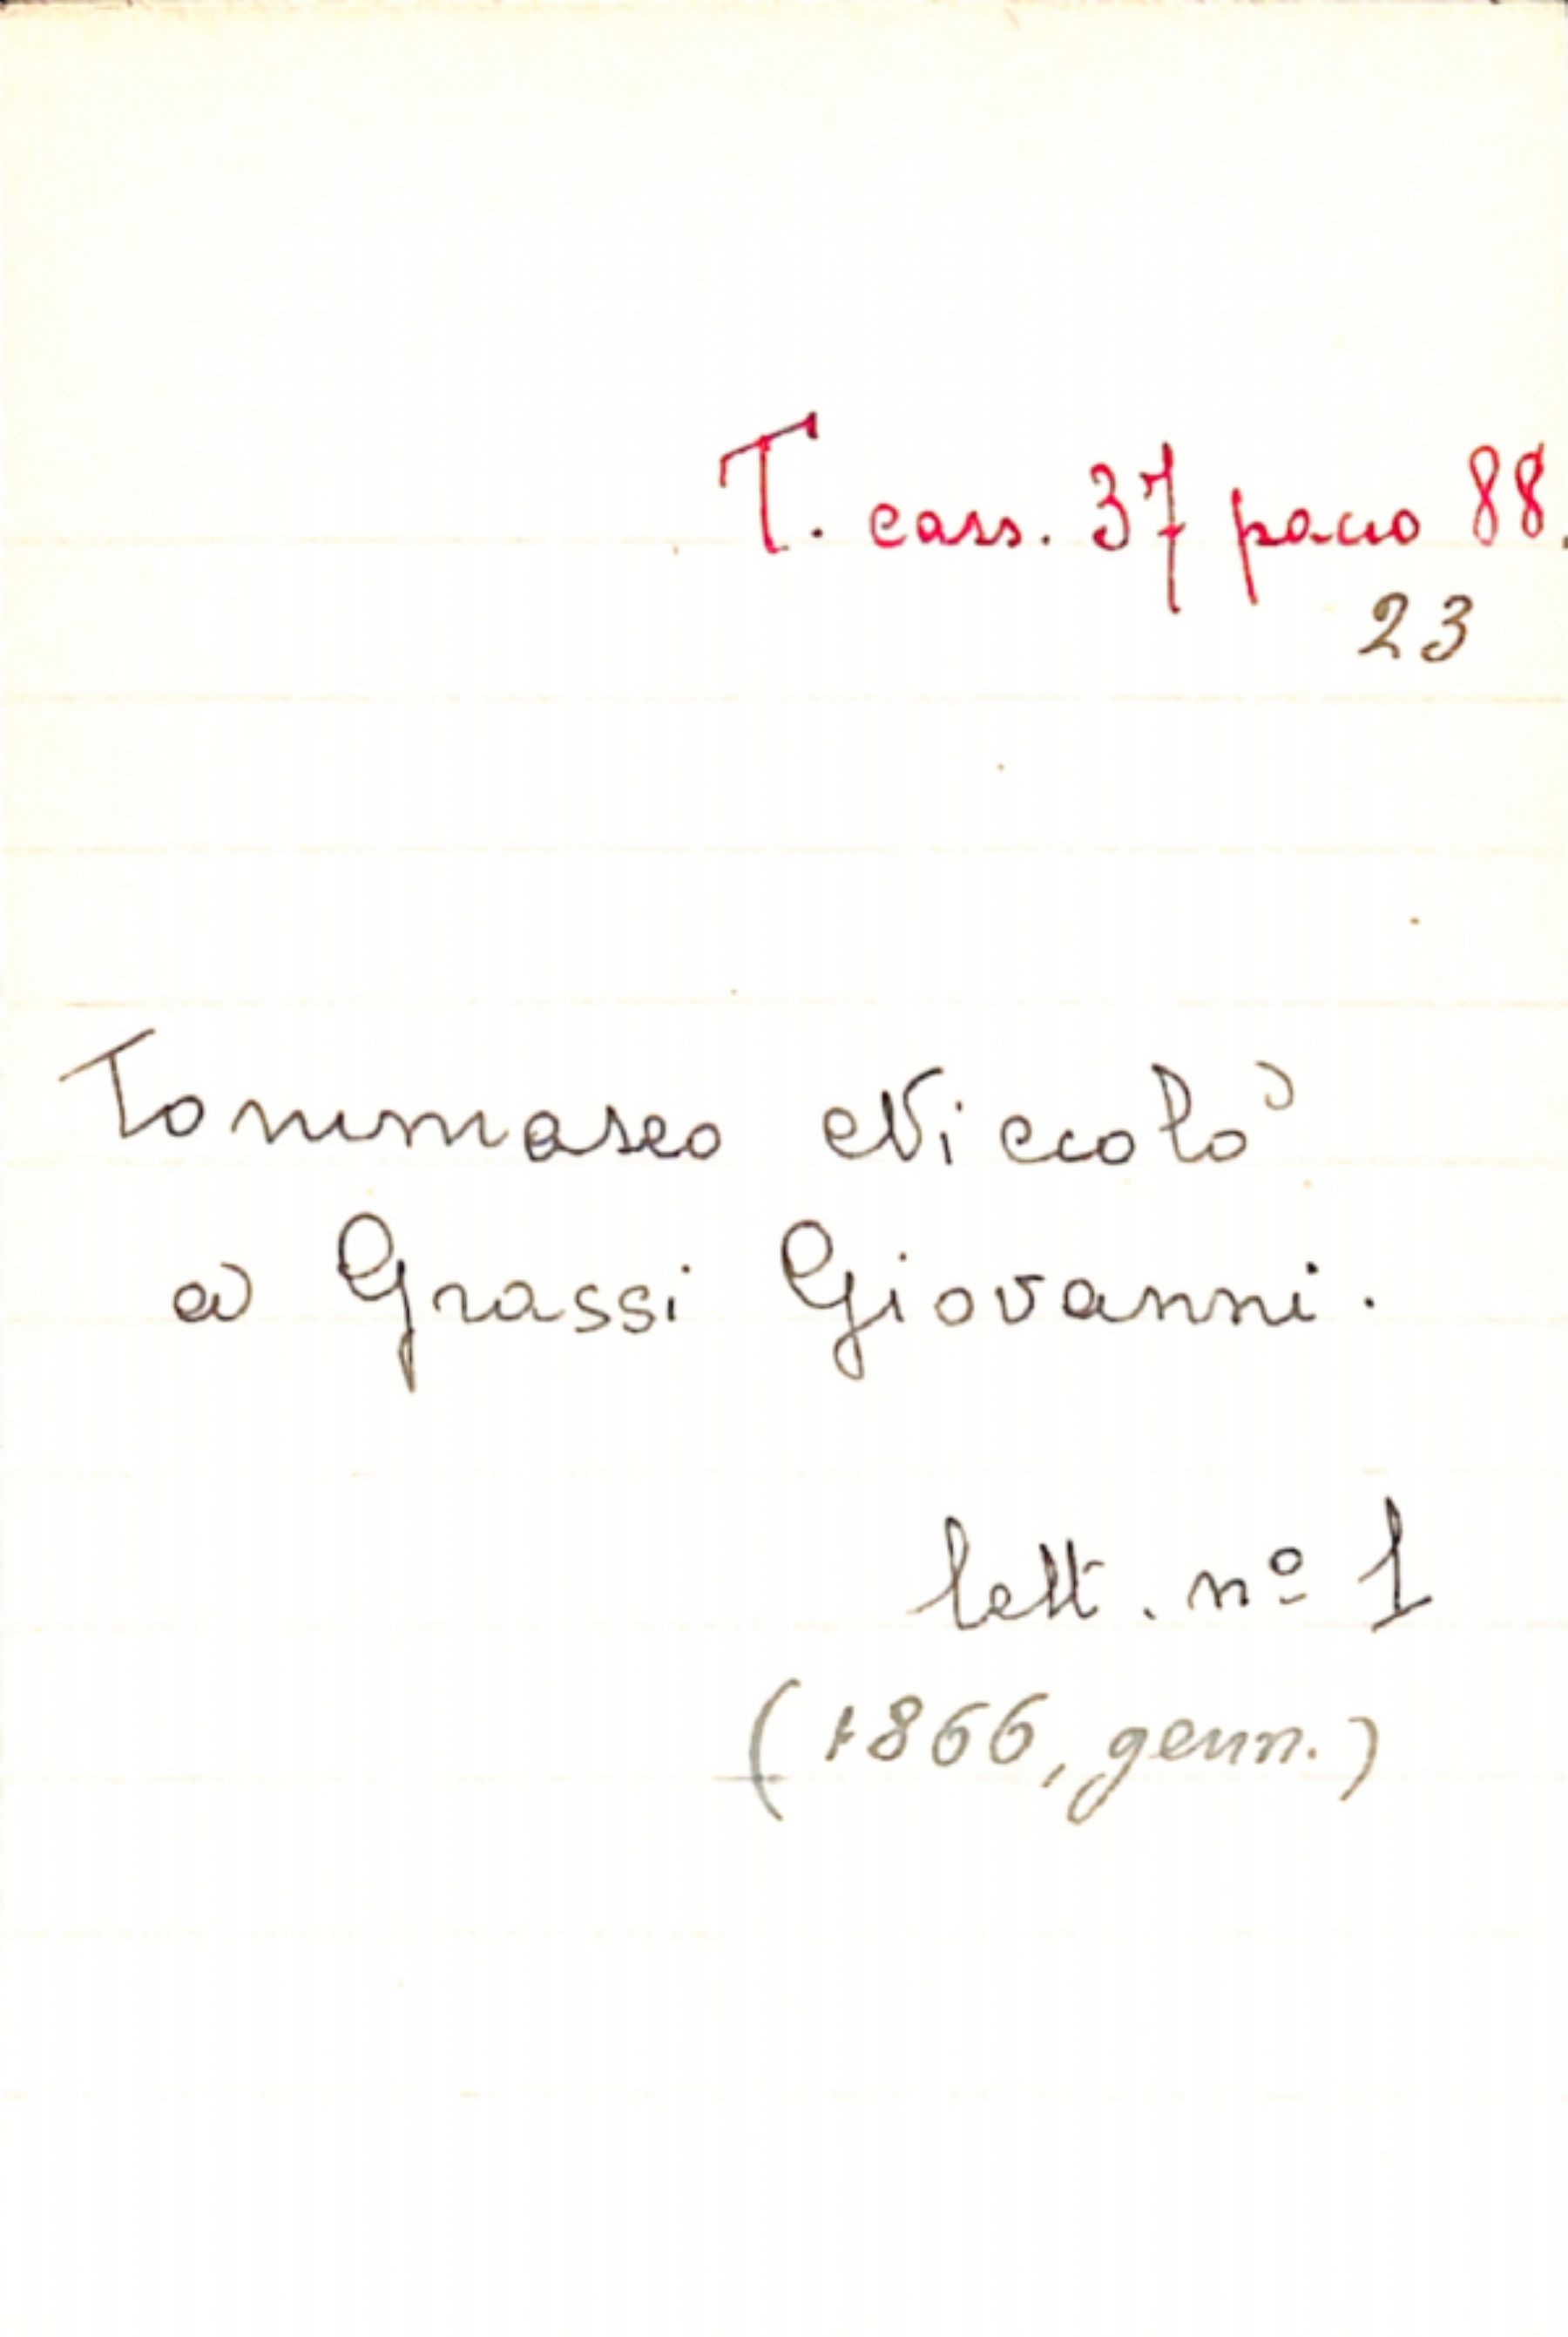 T. cass. 37 pacco 88.
23
Tommaseo Niccolò
a Grassi Giovanni.
lett. nº 1
(1866, genn.)